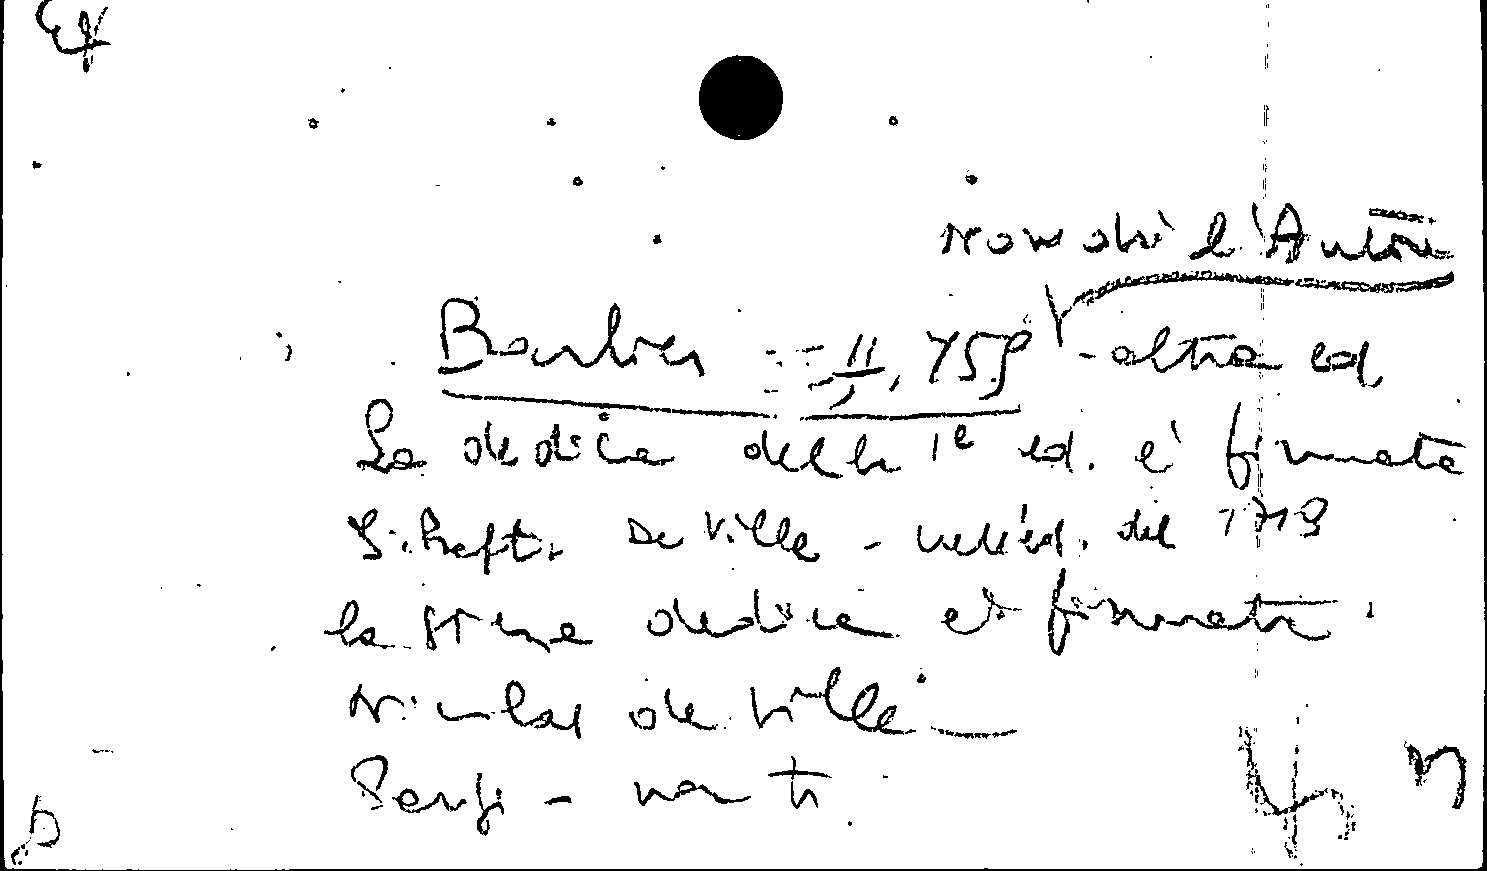 non dà l'Autore
Barbier = II, 759 - altra ed
La dedica della 1e ed. è firmata
De Ville - nell'ed. del 1713
la stessa dedica è firmata
Nicolas de Ville
Parigi - non tr